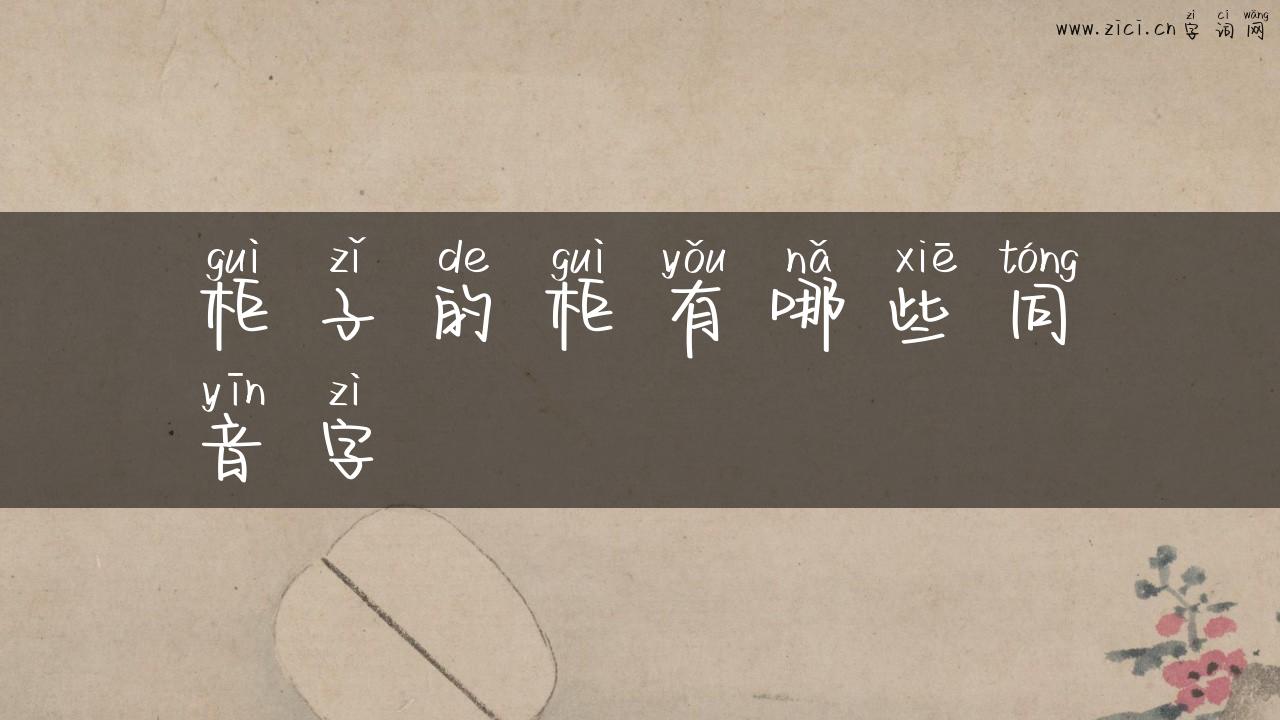 zì cí wǎng
www.zici.cn 字词网
guì zǐ de guì yǒu nǎ xiē tóng
柜子的柜有哪些同
yīn zì
音字